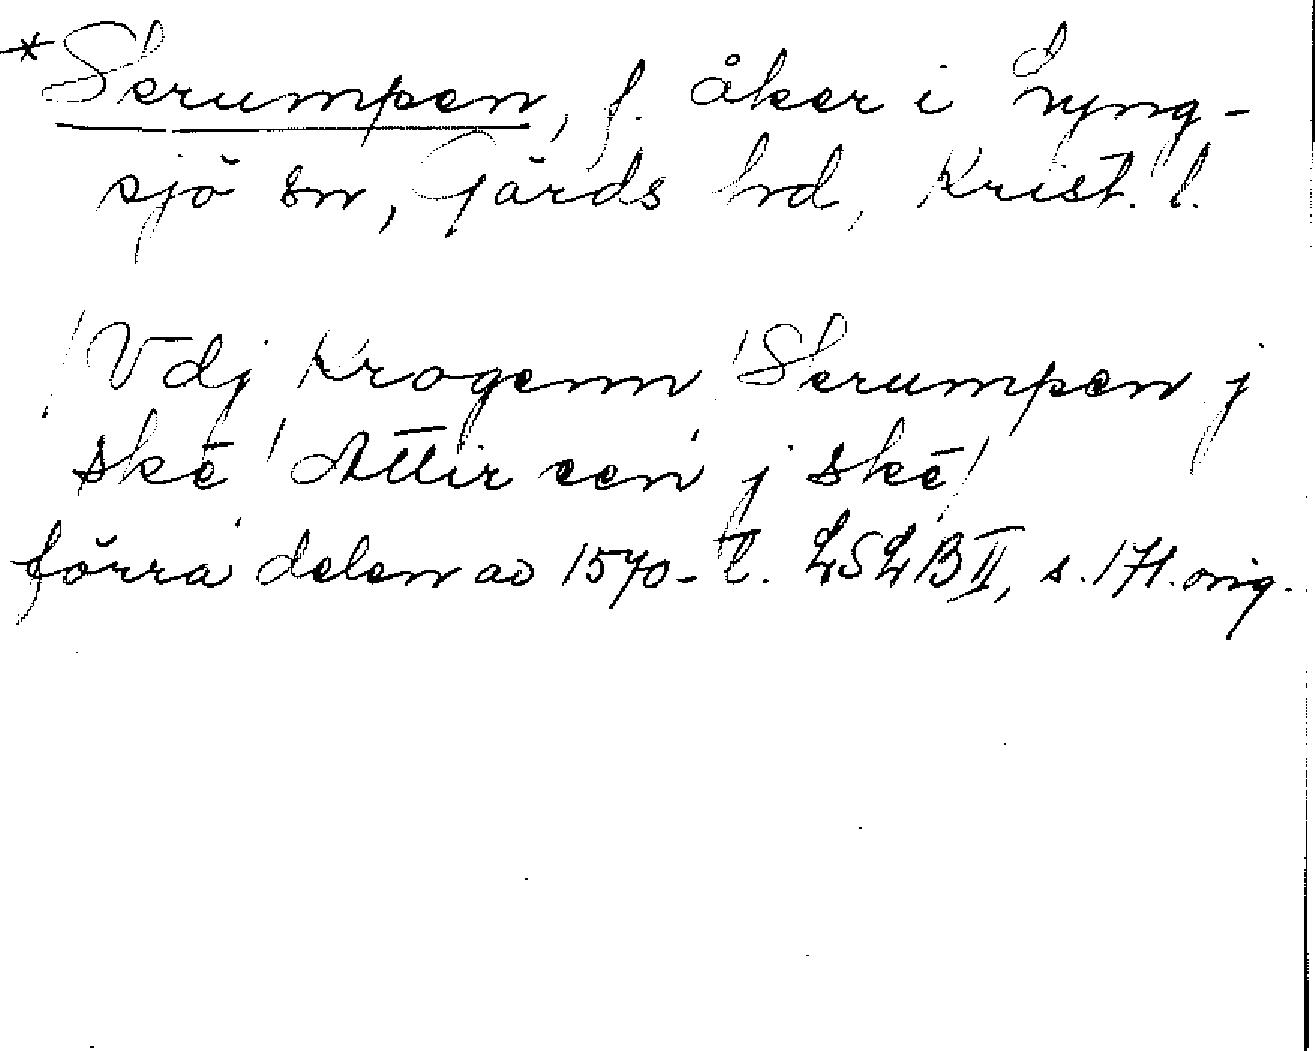 *Scrumpen, f. åker i Lyng-
sjö sn, Gärds hd, Krist. l.
/Vdj Krogenn /Scrumpen j
skē/ Attir een j skē/
förra delen av 1570-t. LSLB II, s. 171. orig.